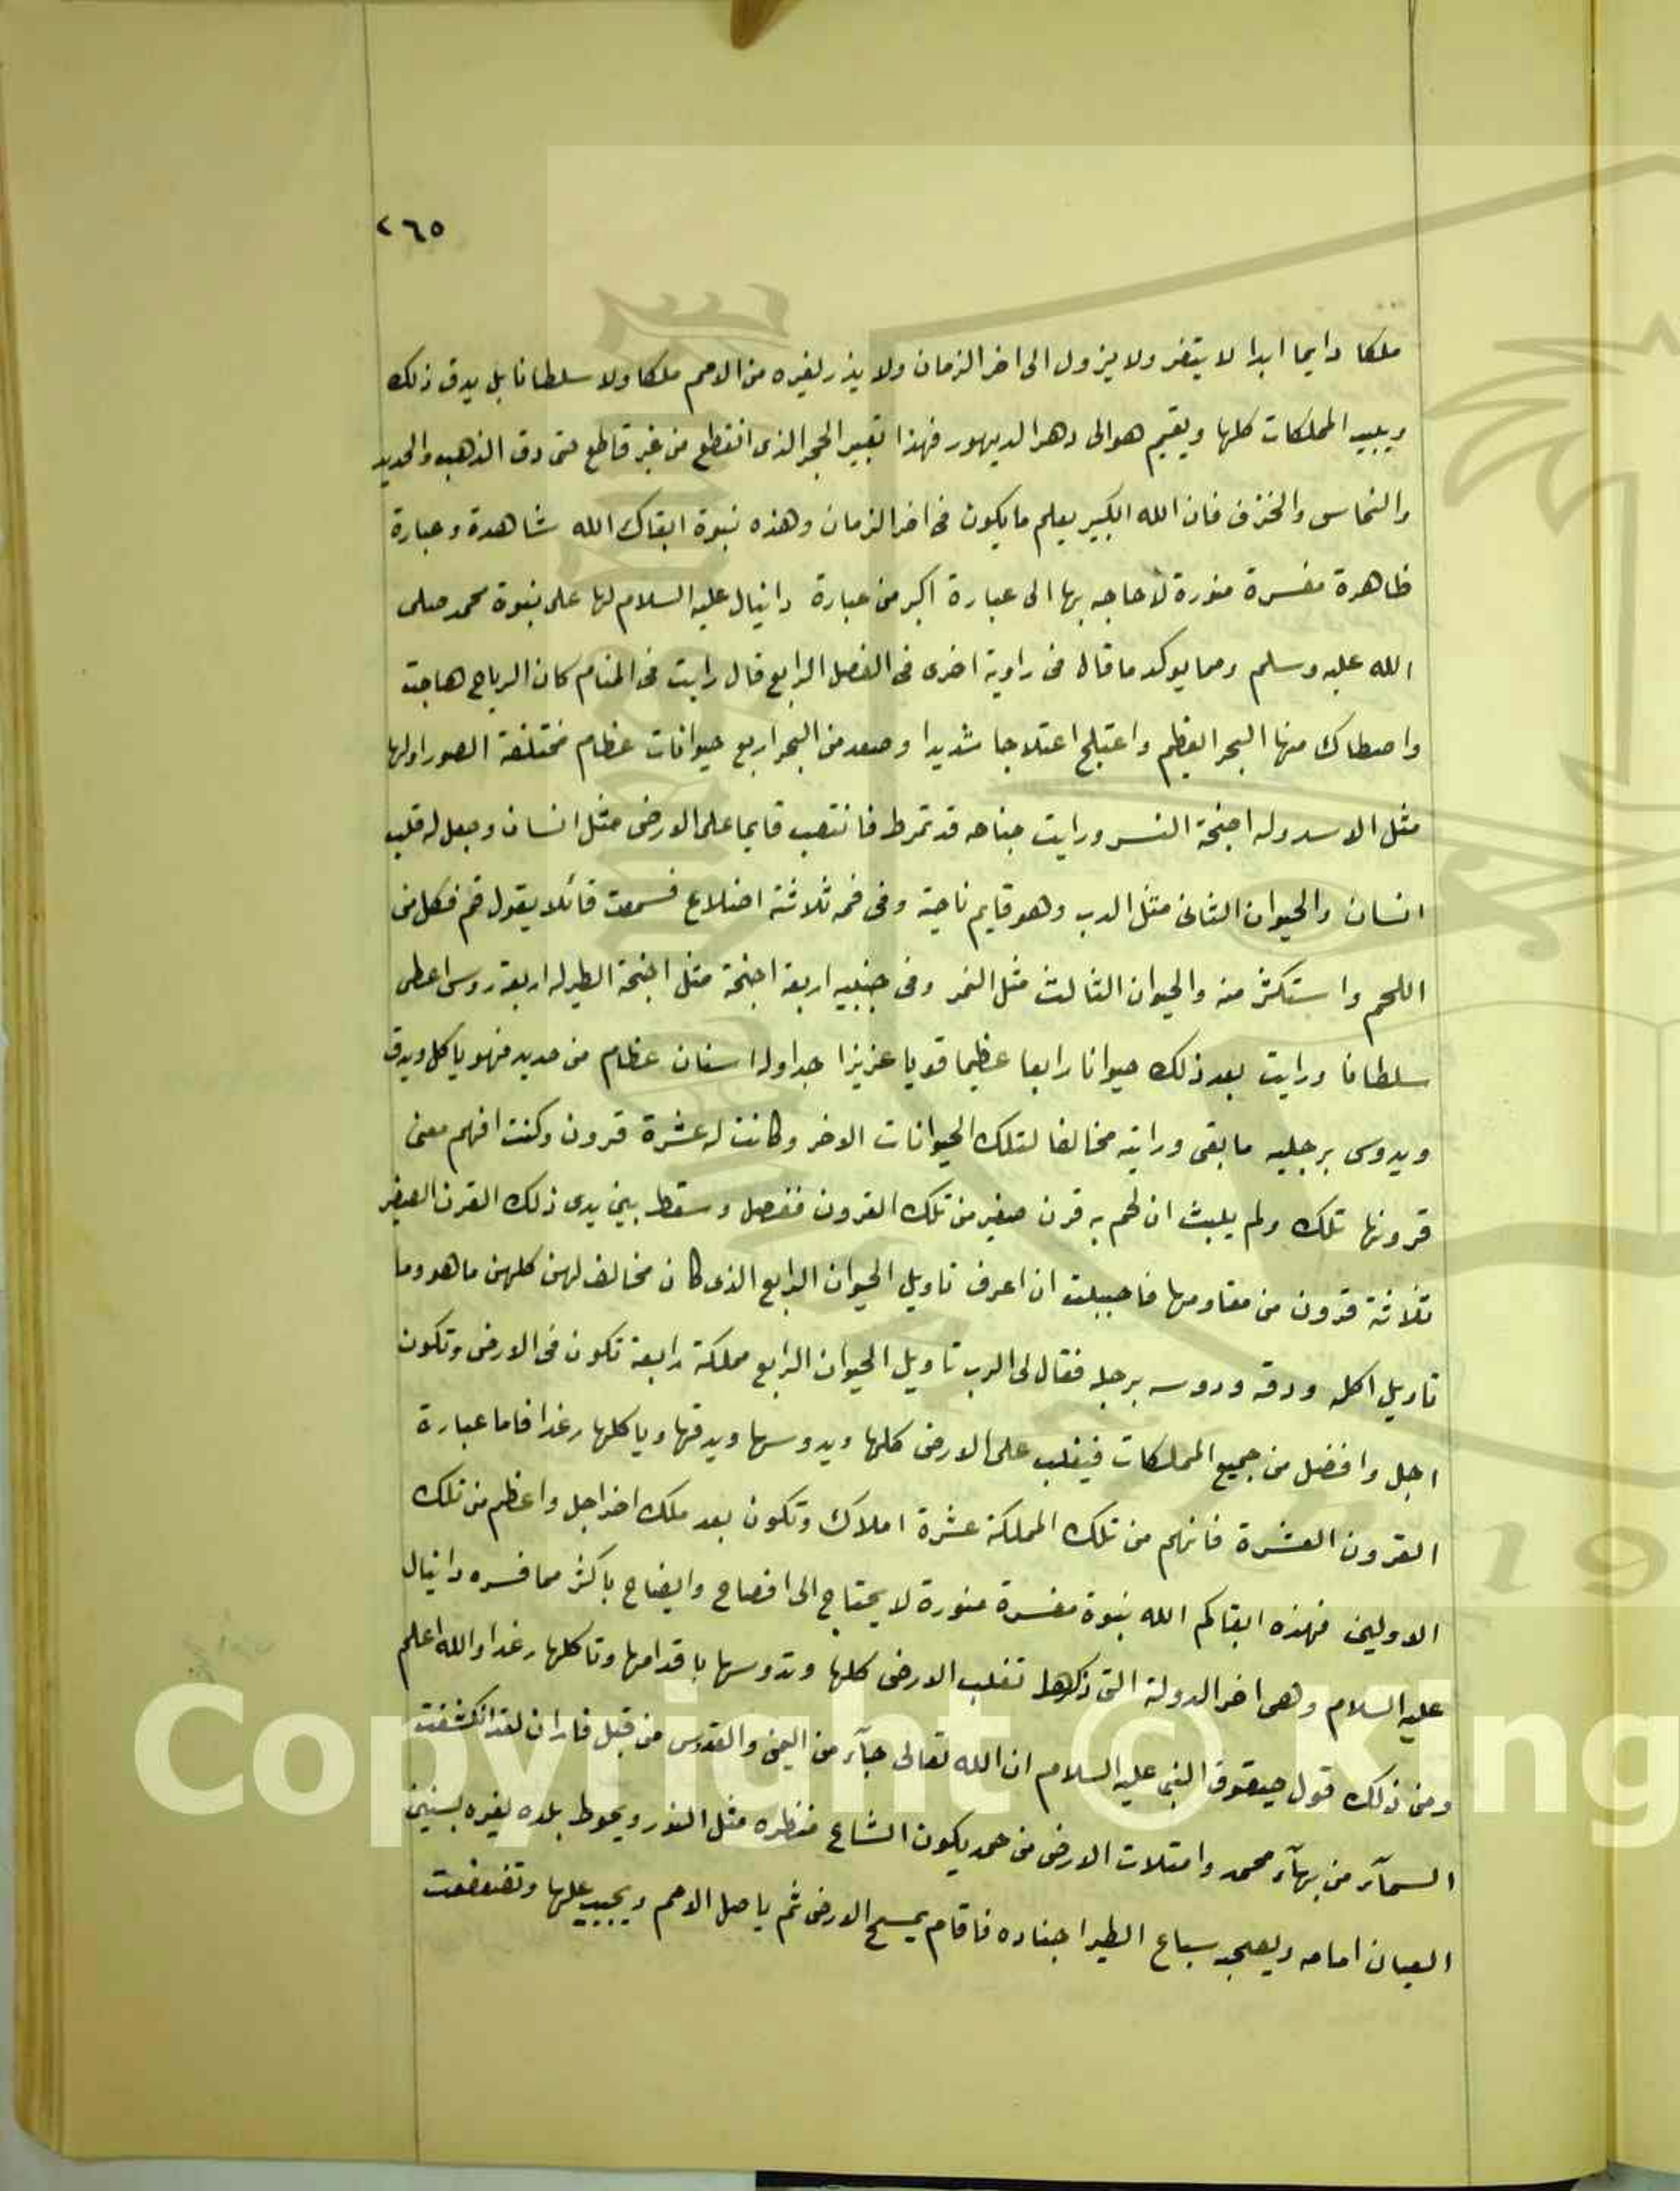 ٢٦٥
ملكا دايما ابدا لا يتغر ولا يزول الى اخر الزمان ولا يذر لغيره من الامم ملكا ولا سلطانا بل يدق ذلك
ويبيد المملكات كلها ويقيم هو الى دهر الديهور فهذا تعبير الحجر الذى انقطع من غير قاطع حتى دق الذهب والحديد
والنحاس والخزف فان الله الكبير يعلم ما يكون فى اخر الزمان وهذه نبوة ابقاك الله شاهدة وعبارة
ظاهرة مفسرة منورة لا حاجه بها الى عبارة اكبر من عبارة دانيال عليه السلام لها على نبوة محمد صلى
الله عليه وسلم ومما يوكد ما قال فى راوية اخرى فى الفصل الرابع قال رايت فى المنام كان الرياح هاجت
واصطاك منها البحر العظيم واعتبلج اعتلاجا شديدا وصعد من البحر اربع حيوانات عظام مختلفة الصور اولها
مثل الاسد وله اجنحة النسر ورايت جناحه قد تمرط فانتصب قايما على الارض مثل انسان وجعل له قلب
انسان والحيوان الثانى مثل الدب وهو قايم ناحية وفى فمه ثلاثة اضلاع فسمعت قائلا يقول قم فكل من
اللحم واستكثر منه والحيوان الثالث مثل النمر وفى جنبيه اربعة اجنحة مثل اجنحة الطير له اربعة روس اعطى
سلطانا ورايت بعد ذلك حيوانا رابعا عظيما قويا عزيزا جدا وله اسنان عظام من حديد فهو ياكل ويدق
ويدوس برجليه ما بقى ورايته مخالفا لتلك الحيوانات الاخر وكانت له عشرة قرون وكنت افهم معنى
قرونها تلك ولم يلبث ان لحم به قرن صغير من تلك القرون ففصل وسقط بين يدى ذلك القرن الصغير
ثلاثة قرون من مقاومها فاحببلت ان اعرف تاويل الحيوان الرابع الذى كان مخالف لهن كلهن ما هو وما
تاويل اكله ودقه ودوسه برجله فقال لى الرب تاويل الحيوان الرابع مملكة رابعة تكون فى الارض وتكون
اجل وافضل من جميع المملكات فيغلب على الارض كلها ويدوسها ويدقها وياكلها رغدا فاما عبارة
القرون العشرة فانهم من تلك المملكة عشرة املاك وتكون بعد ملك اخر اجل واعظم من تلك
الاولين فهذه ابقاكم الله نبوة مفسرة منورة لا يحتاج الى افصاح وايضاح باكثر مما فسره دانيال
عليه السلام وهى اخر الدولة التى ذكرها تغلب الارض كلها وتدوسها باقدامها وتاكلها رغدا والله اعلم
ومن ذلك قول حبقوق النبى عليه السلام ان الله تعالى جآء من اليمن والقدوس من قبل فاران لقد انكشفت
السمآء من بهآء محمد وامتلات الارض من حمد يكون الشاع منظره مثل النور ويحوط بلده بغيره بسنين
العيان امامه ويصجد سباع الطير اجناده فاقام يمسح الارض ثم ياصل الامم ويجيب عليها وتضعضعت
Copyright © King
19